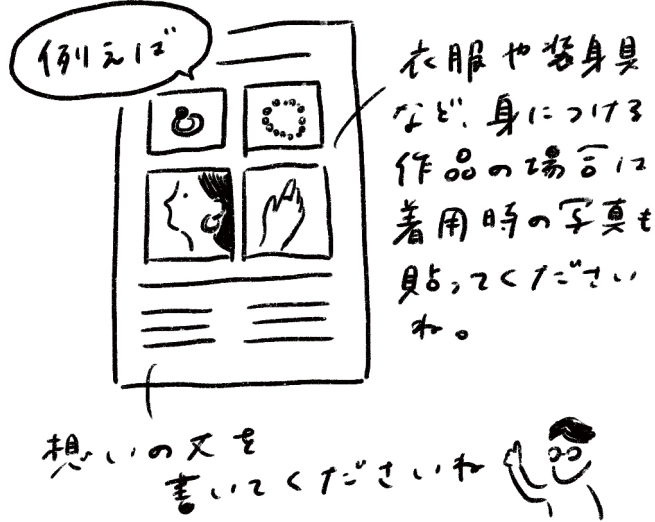 例えば
衣服や装身具
など、身につける
作品の場合は
着用時の写真も
貼ってください
ね。
想いの文を
書いてくださいね